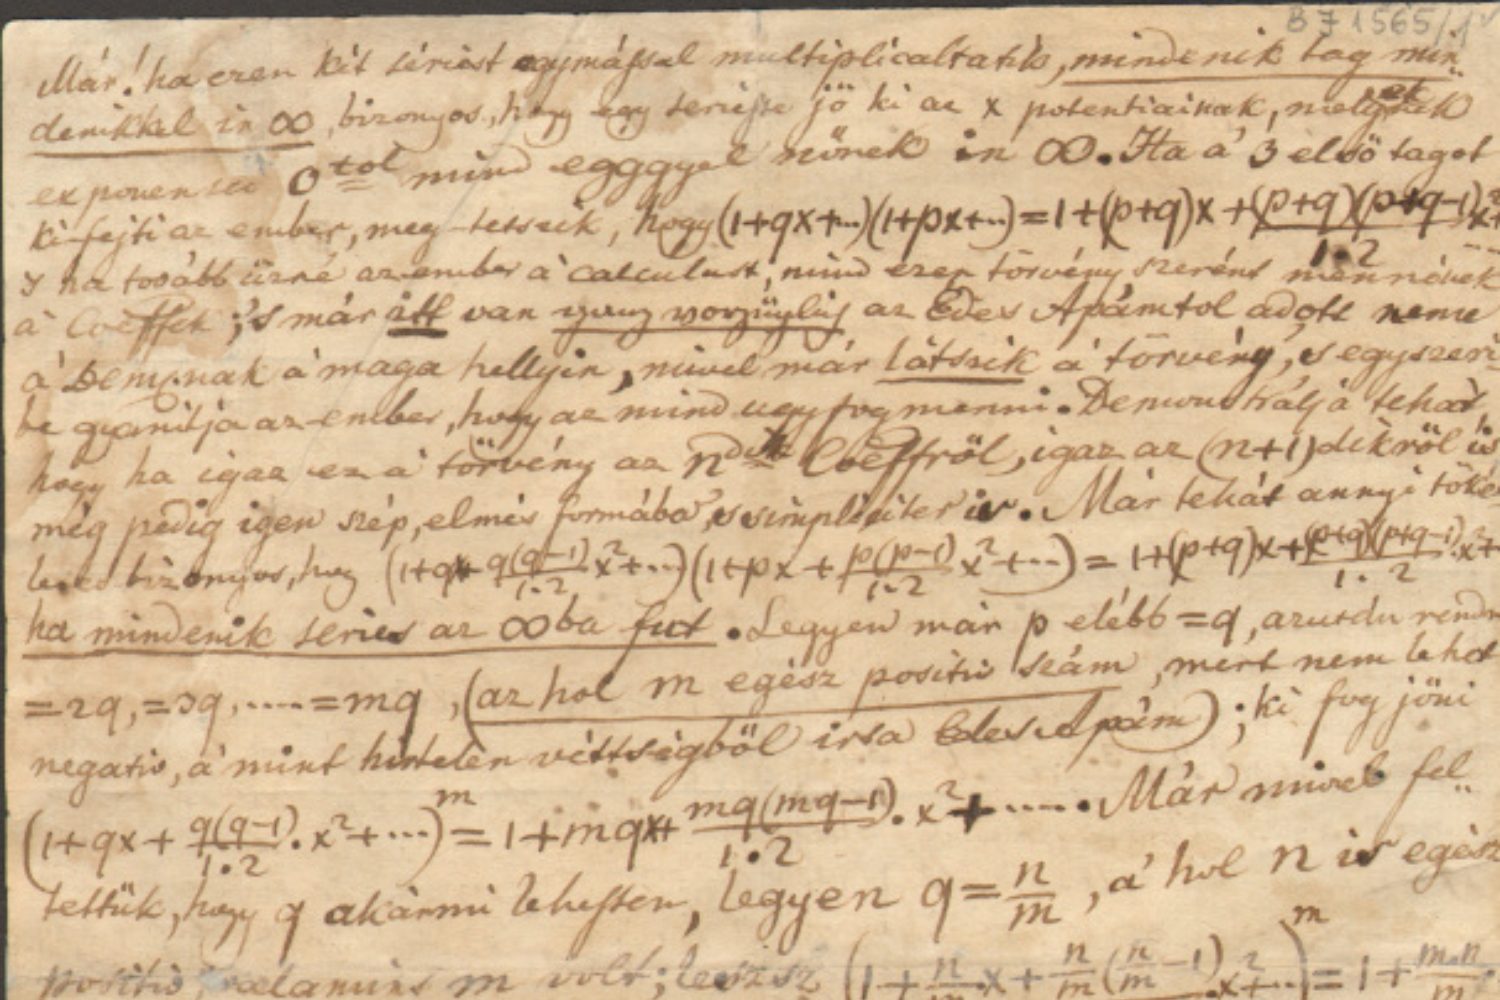 B 7 1565/1v
Már! ha ezen két seriest egymással multiplicáltatik, mindenik tag min
denikkel in ∞, bizonyos, hogy egy series jö ki az x potentiainak, melyeknek
exponensei 0tol mind egggyel nőnek in ∞. Ha a' 3 első tagot
ki-fejti az ember, meg-tetszik, hogy (1+qx+...)(1+px+...) = 1+(p+q)x + (p+q)(p+q-1)/1·2 x²+
s ha tovább űzné az ember a' calculust, mind ezen törvény szerént mennének
a' Coëffek; 's már itt van az Édes Apámtol adott neme
a' Dem.nak a' maga hellyin, mivel már látszik a' törvény, s egyszeri-
be gyanítja az ember, hogy az mind ugy fog menni. Demonstrálja tehát
hogy ha igaz ez a' törvény az ndik Coëffről, igaz az (n+1)dikről is
még pedig igen szép, elmés formába, s simpliciter is. Már tehát annyi töké
letes bizonyos, hogy (1+qx+ q(q-1)/1·2 x²+...)(1+px+ p(p-1)/1·2 x²+...) = 1+(p+q)x+(p+q)(p+q-1)/1·2 x²+
ha mindenik series az ∞ba fut. Legyen már p elébb =q, azután rendre
=2q, =3q, .....=mq, (az hol m egész positiv szám, mert nem lehet
negativ, a' mint hirtelen véttségből irta Édes Apám); ki fog jőni
(1+qx+ q(q-1)/1·2 . x²+...)^m = 1+mqx+ mq(mq-1)/1·2 . x²+ ..... Már mivel fel
tettük, hogy q akármi lehessen, legyen q = n/m, a' hol n is egész
positiv, valamint m volt; lesz (1+ n/m x + n/m (n/m -1) x²+...)^m = 1+ m·n/m